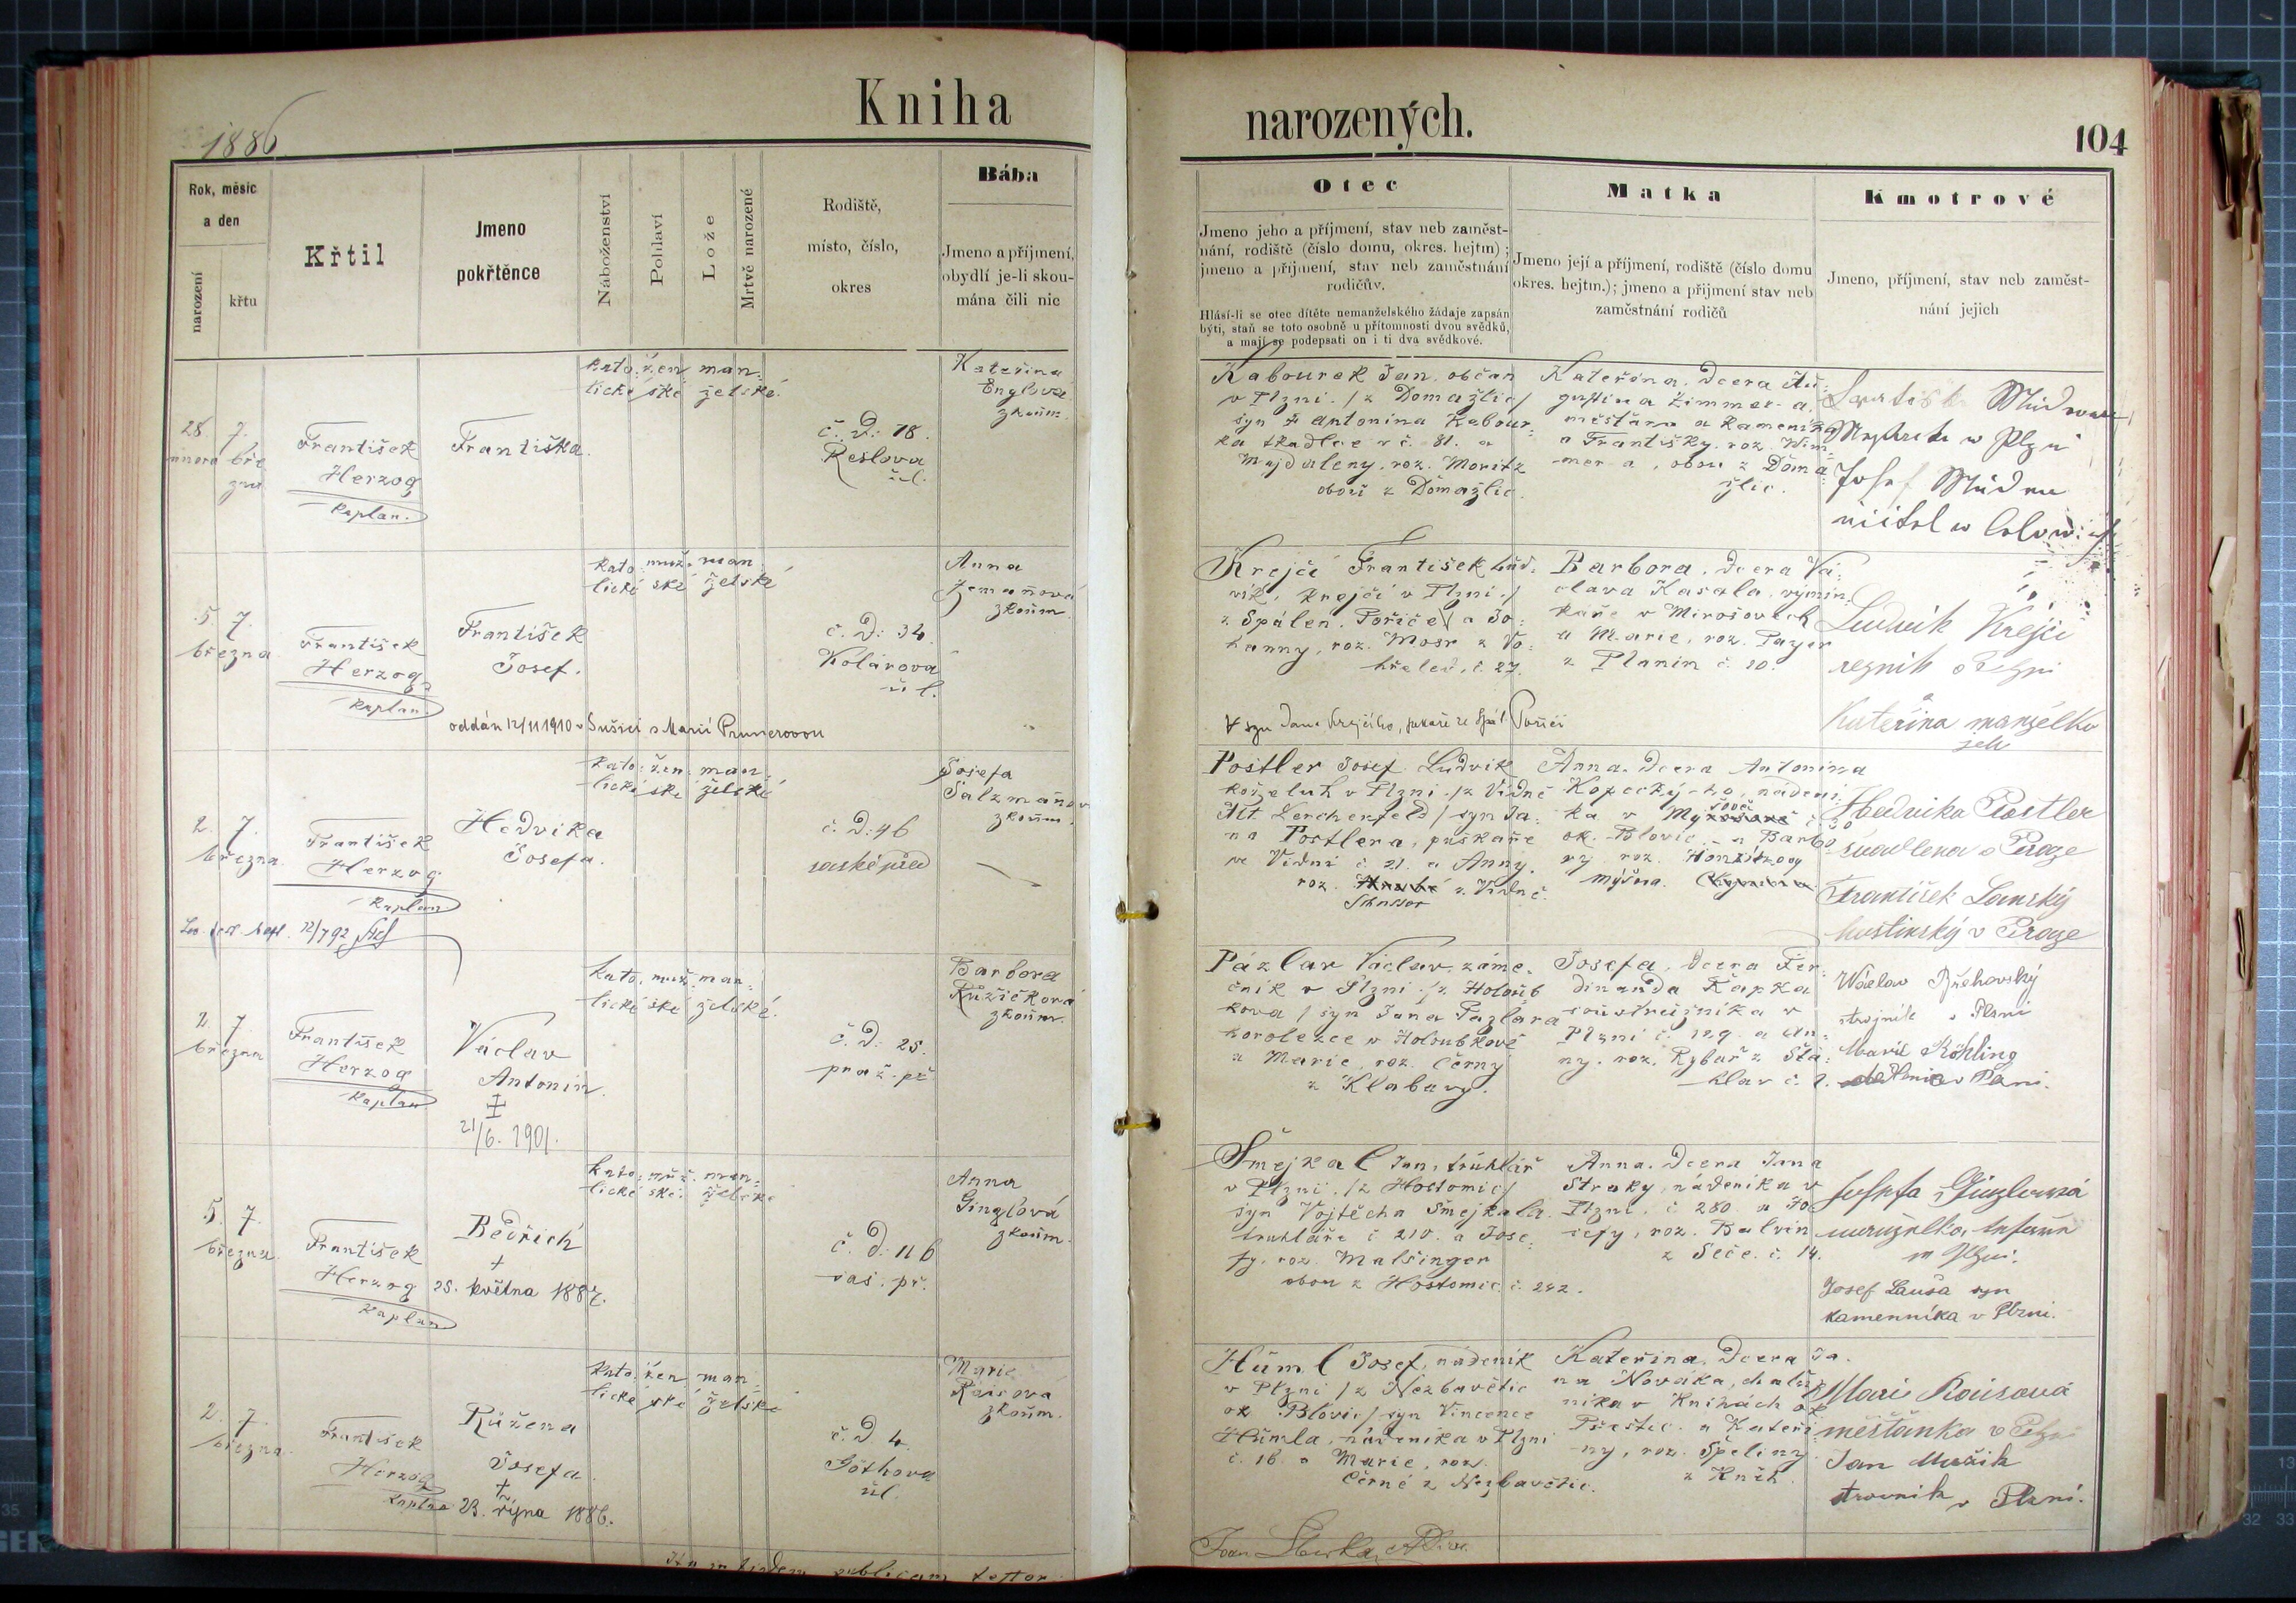 Kniha
narozených.
1886
104
Rok, měsíc
a den
narození
křtu
Křtil
Jmeno
pokřtěnce
Náboženství
Pohlaví
Lože
Mrtvě narozené
Rodiště,
místo, číslo,
okres
Bába
Jmeno a příjmení,
obydlí je-li skou-
mána čili nic
Otec
Jmeno jeho a příjmení, stav neb zaměst-
nání, rodiště (číslo domu, okres. hejtm);
jmeno a příjmení, stav neb zaměstnání
rodičův.
Hlásí-li se otec dítěte nemanželského žádaje zapsán
býti, staň se toto osobně u přítomnosti dvou svědků,
a mají se podepsati on i ti dva svědkové.
Matka
Jmeno její a příjmení, rodiště (číslo domu
okres. hejtm.); jmeno a příjmení stav neb
zaměstnání rodičů
Kmotrové
Jmeno, příjmení, stav neb zaměst-
nání jejich
28. 7.
února bře
zna
František
Herzog
kaplan.
Františka.
kato: žen man:
lické ské želské.
č. D: 18.
Reslova
ul.
Kateřina
Englová
zkoum.
Kabourek Jan, občan
v Plzni. /z Domažlic/
syn Antonína Kabour-
ka tkadlce v č. 81. a
Majdaleny, roz. Moritz
oboří z Domažlic.
Kateřina, dcera Au-
gustina Zimmer-a,
měšťana a kameníka
a Františky, roz. Wim
mer-a, obou z Doma
žlic.
w Plzni
Josef
5. 7.
března
František
Herzog
kaplan
František
Josef.
kato: muž. man
lické ské želské
č. D: 34.
Kolárova
ul.
Anna
Zemanová
zkoum.
oddán 12/11 1910 v Sušici s Marií Prunerovou
Krejčí František Lud-
vík, krejčí v Plzni /
z Spálen. Poříče / a Jo-
hanny, roz. Mosr z Vo-
křeled, č. 27.
Barbora, dcera Vá-
clava Kasala, výmin-
kaře v Mirošovech
a Marie, roz. Payer
z Planin č. 10.
Ludvík Krejčí
řezník v Plzni
Kateřina manželka
jeh
syn Jana Krejčího, pekaře ze Spál. Poříčí
2. 7.
března.
František
Herzog
kaplan
Hedvika
Josefa.
kato: žen: man
lické ské želské
č. D: 46
saské před
Josefa
Salzmanov
zkoum.
Postler Josef Ludvík
koželuh v Plzni /z Vídně
Alt Lerchenfeld / syn Ja-
na Postlera, puškaře
ve Vídni č 21. a Anny,
roz. z Vídně.
Anna, dcera Antonína
Kopeckýho, nádení-
ka v
ok. Blovic - a Barbo
ry roz.
Hedvika Postler
švadlena v Praze
František Lanský
hostinský v Praze
2. 7.
března
František
Herzog
kaplan
Václav
Antonín.
21/6. 1901.
kato: muž. man-
lické ské želské.
č. D: 25.
praž. př
Barbora
Růžičková
zkoum.
Pázlar Václav, záme-
čník v Plzni /z Holoub
kova / syn Jana Pazlara
korolezce v Holoubkově
a Marie, roz. Černý
z Klabavy.
Josefa, dcera Fer-
dinanda Kapka
soustružníka v
Plzni č. 129. a An-
ny, roz. Rybář z Stá-
hlav č. 2.
Wáclav Břehovský
strojník v Plzni
Marie Röhling
v Plzni.
5. 7.
března
František
Herzog
kaplan
Bedřich
+
25. května 1887.
kato: muž. man-
lické ské. želské
č. D: 116
saš. př.
Anna
Ginzlová
zkoum.
Šmejkal Jan, truhlář
v Plzni. /z Hostomic/
syn Vojtěcha Šmejkala
truhláře č 210. a Jose-
fy, roz. Malsinger
obou z Hostomic č. 242.
Anna, dcera Jana
Straky, nádeníka v
Plzni, č 280. a Jo
sefy, roz. Balvín
z Seče. č. 14.
Josefa Ginzlowá
w Plzni.
Josef Lauša syn
kamenníka v Plzni.
2. 7.
března.
František
Herzog
kaplan
Růžena
Josefa.
+
23. října 1886.
kato: žen man-
lické ské želské
č. D. 4.
Göthova
ul.
Marie
Raisová
zkoum.
Huml Josef, nádeník
v Plzni /z Nezbavětic
ok Blovic/ syn Vincence
Humla, nádeníka v Plzni
č. 16. a Marie, roz.
Černé z Nezbavětic.
Kateřina, dcera Ja-
na Nováka, chalu-
níka v Knihách ok
Přeštic. a Kateři-
ny, roz. Špeliny
z Knih.
Marie Raisová
měšťanka v Plzni
Jan
v Plzni.